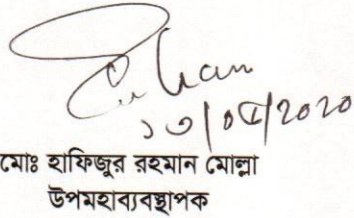 ১৩/০৫/2020
মোঃ হাফিজুর রহমান মোল্লা
উপমহাব্যবস্থাপক